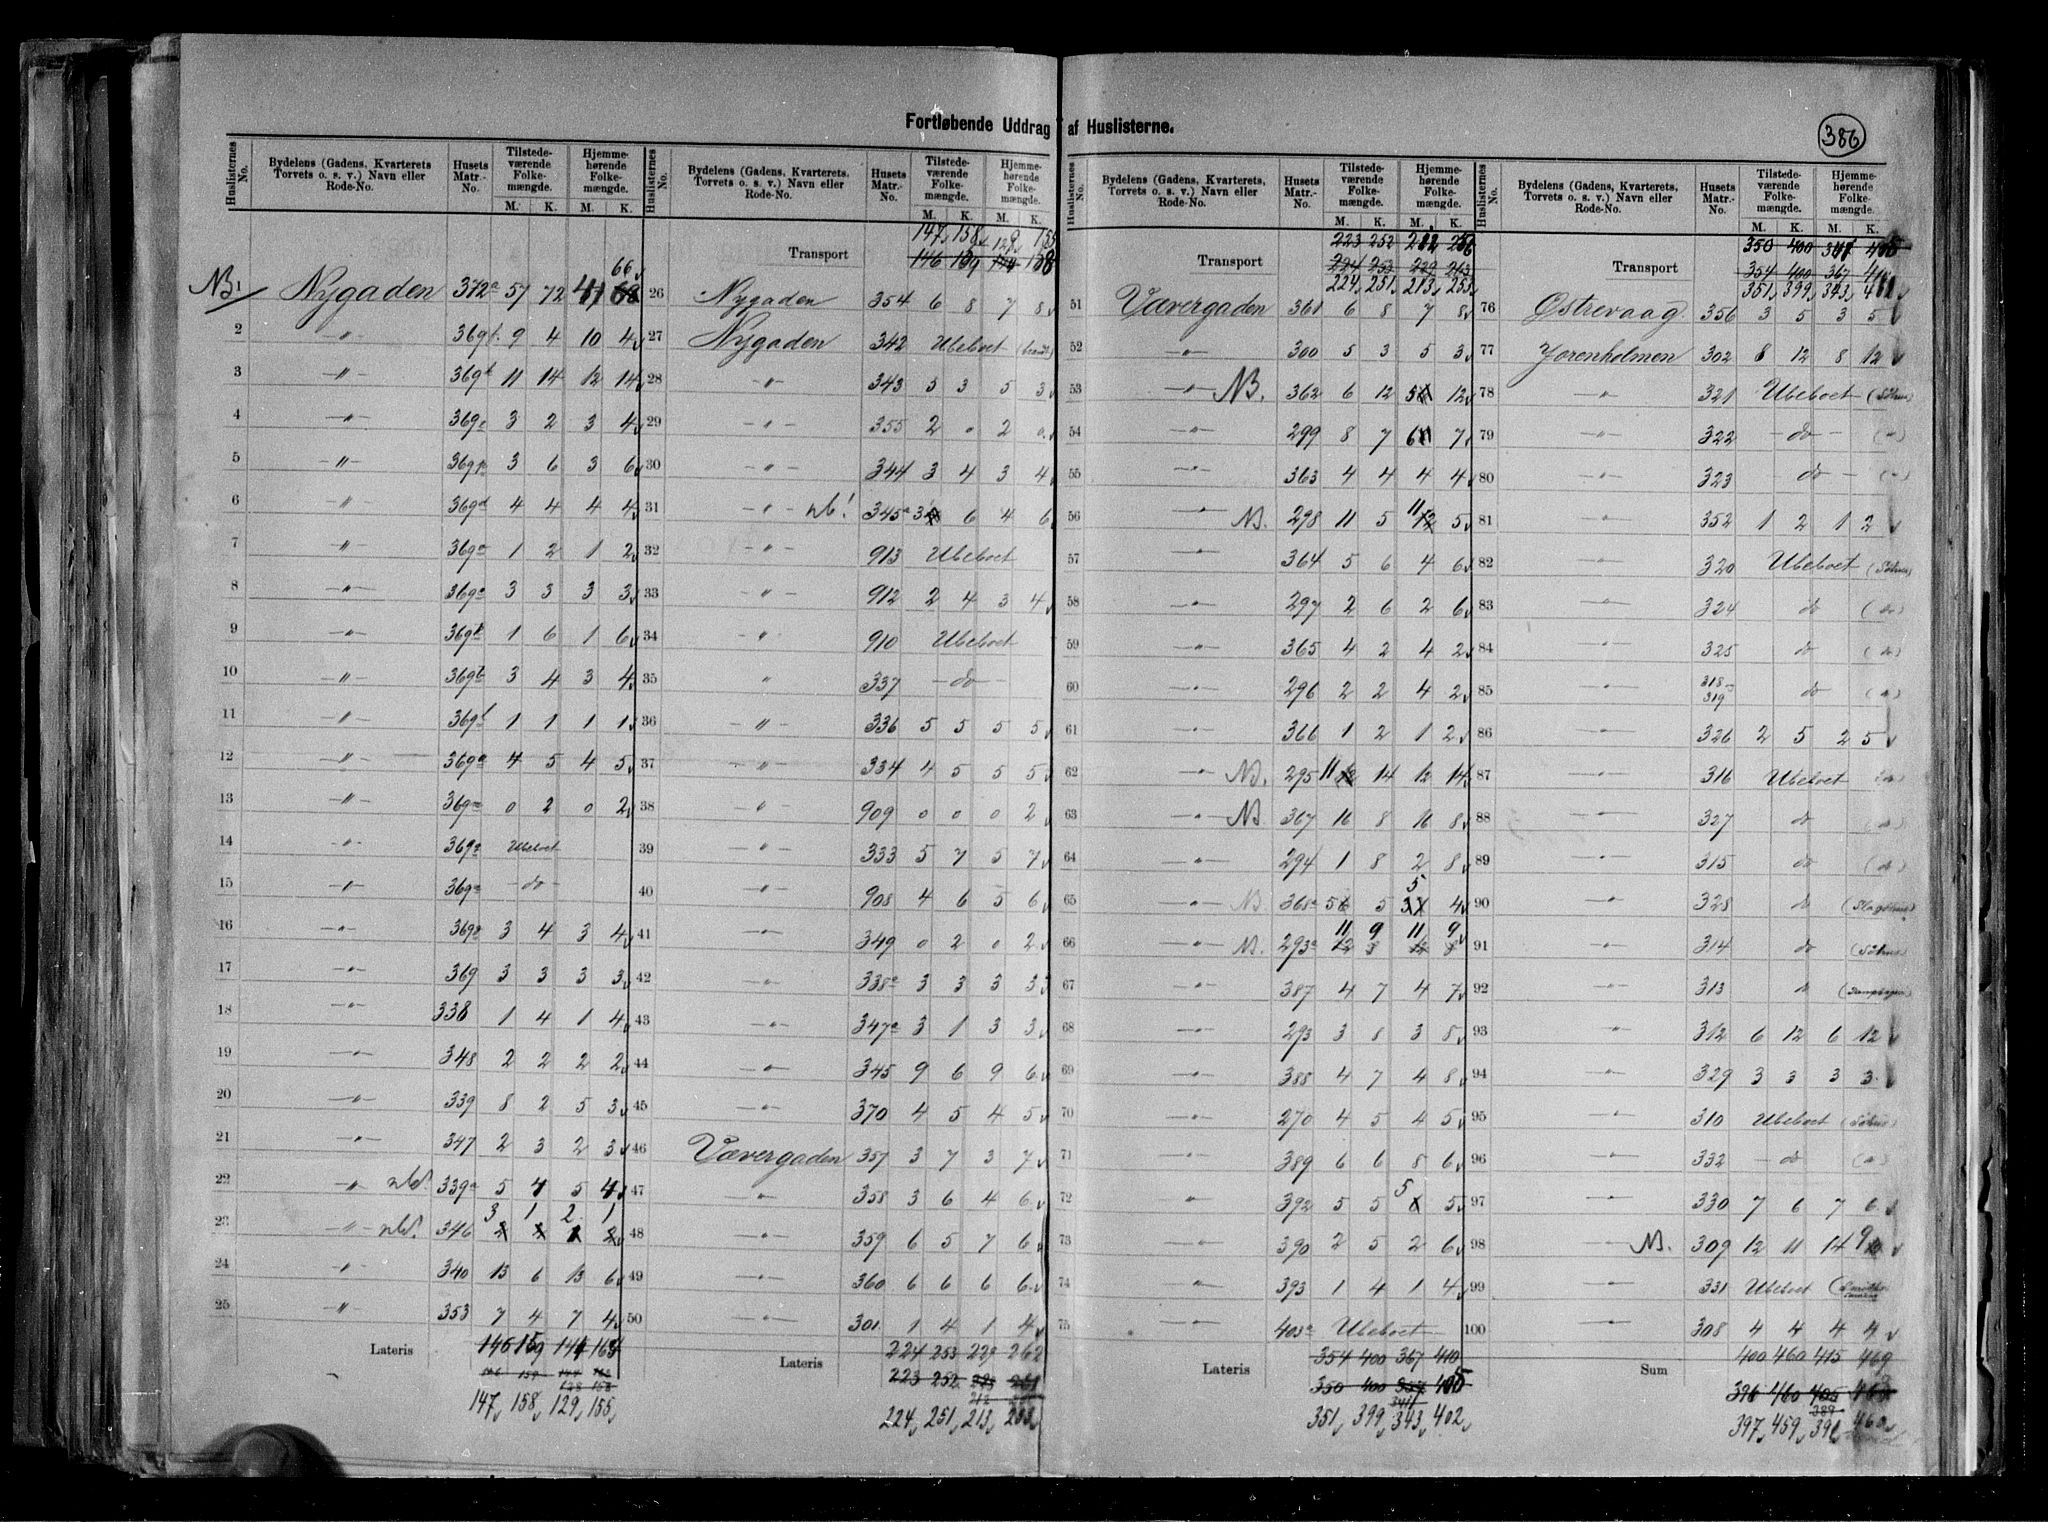 386
Fortløbende Uddrag af Huslisterne.
Huslisternes No. | Bydelens (Gadens, Kvarterets Torvets o. s. v.) Navn eller Rode-No. | Husets Matr.-No. | Tilstedeværende Folkemængde. M. K. | Hjemmehørende Folkemængde. M. K.
66
NB 1 Nygaden 372a 57 72 41
2 " 369 9 4 10 4
3 " 369 11 14 12 14
4 " 369 3 2 3 4
5 " 369 3 6 3 6
6 " 369d 4 4 4 4
7 " 369 1 2 1 2
8 " 369 3 3 3 3
9 " 369 1 6 1 6
10 " 369 3 4 3 4
11 " 369 1 1 1 1
12 " 369 4 5 4 5
13 " 369 0 2 0 2
14 " 369 Ubeboet
15 " 369 - do -
16 " 369 3 4 3 4
17 " 369 3 3 3 3
18 " 338 1 4 1 4
19 " 348 2 2 2 2
20 " 339 8 2 5 3
21 " 347 2 3 2 3
22 " nb. 339a 5 4 5 4
23 " nb. 346 3 1 2 1
24 " 340 13 6 13 6
25 " 353 7 4 7 4
Lateris 146 159
147 158 129 155
Huslisternes No. | Bydelens (Gadens, Kvarterets, Torvets o. s. v.) Navn eller Rode-No. | Husets Matr.-No. | Tilstedeværende Folkemængde. M. K. | Hjemmehørende Folkemængde. M. K.
147 158 129 155
Transport 146 159
26 Nygaden 354 6 8 7 8
27 Nygaden 342 Ubeboet
28 " 343 5 3 5 3
29 " 355 2 0 2 0
30 " 344 3 4 3 4
31 " nb! 345a 3 6 4 6
32 " 913 Ubeboet
33 " 912 2 4 3 4
34 " 910 Ubeboet
35 " 337 - do -
36 " 336 5 5 5 5
37 " 334 4 5 5 5
38 " 909 0 0 0 2
39 " 333 5 7 5 7
40 " 908 4 6 5 6
41 " 349 0 2 0 2
42 " 338a 3 3 3 3
43 " 347a 3 1 3 3
44 " 345 9 6 9 6
45 " 370 4 5 4 5
46 Vævergaden 357 3 7 3 7
47 " 358 3 6 4 6
48 " 359 6 5 7 6
49 " 360 6 6 6 6
50 " 301 1 4 1 4
Lateris 224 253 229 262
223 252
212
224 251 213 253
Huslisternes No. | Bydelens (Gadens, Kvarterets, Torvets o. s. v.) Navn eller Rode-No. | Husets Matr.-No. | Tilstedeværende Folkemængde. M. K. | Hjemmehørende Folkemængde. M. K.
223 252 212 256
Transport 224 253 229 263
224 251 213 253
51 Vævergaden 361 6 8 7 8
52 " 300 5 3 5 3
53 " NB. 362 6 12 5 12
54 " 299 8 7 6 7
55 " 363 4 4 4 4
56 " NB. 298 11 5 11 5
57 " 364 5 6 4 6
58 " 297 2 6 2 6
59 " 365 4 2 4 2
60 " 296 2 2 4 2
61 " 366 1 2 1 2
62 " NB. 295 11 14 12 14
63 " NB 367 16 8 16 8
64 " 294 1 8 2 8
65 " NB. 368a 5 5 5 4
66 " NB. 293a 11 9 11 9
67 " 387 4 7 4 7
68 " 293 3 8 3 8
69 " 388 4 7 4 8
70 " 270 4 5 4 5
71 " 389 6 6 8 6
72 " 392 5 5 5 5
73 " 390 2 5 2 6
74 " 393 1 4 1 4
75 " 403a Ubeboet
Lateris 354 400 367 410
350 400 357 405
351 399 343 402
Huslisternes No. | Bydelens (Gadens, Kvarterets, Torvets o. s. v.) Navn eller Rode-No. | Husets Matr.-No. | Tilstedeværende Folkemængde. M. K. | Hjemmehørende Folkemængde. M. K.
350 400 347 405
Transport 354 400 367 410
351 399 343
76 Østrevaag. 356 3 5 3 5
77 Jorenholmen 302 8 12 8 12
78 " 321 Ubeboet (Söhus)
79 " 322 - do -
80 " 323 - do -
81 " 352 1 2 1 2
82 " 320 Ubeboet (Söhus)
83 " 324 do (do)
84 " 325 do (do)
85 " 318-319 do
86 " 326 2 5 2 5
87 " 316 Ubeboet
88 " 327 do (do)
89 " 315 do (do)
90 " 328 do
91 " 314 do (Söhus)
92 " 313 do
93 " 312 6 12 6 12
94 " 329 3 3 3 3
95 " 310 Ubeboet (Söhus)
96 " 332 - do -
97 " 330 7 6 7 6
98 " NB. 309 12 11 14 9
99 " 331 Ubeboet
100 " 308 4 4 4 4
Sum 400 460 415 469
396 460 405
389
397 459 391 460